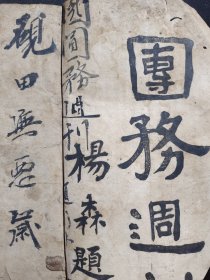 團務週
務週刊楊森題
硯田無惡歲